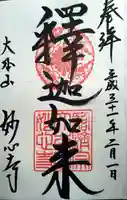 奉拝
平成三十一年二月一日
釋迦如来
大本山
妙心寺